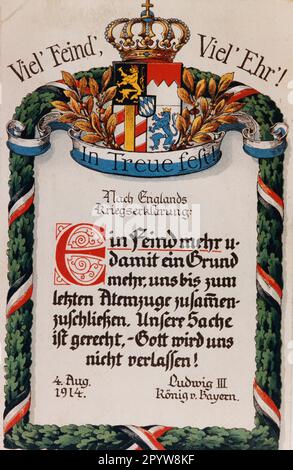 Viel' Feind', Viel' Ehr'!
In Treue fest!
Nach Englands
Kriegserklärung:
Ein Feind mehr u-
damit ein Grund
mehr, uns bis zum
letzten Atemzuge zusam̅en-
zuschließen. Unsere Sache
ist gerecht, -Gott wird uns
nicht verlassen!
4. Aug.
1914.
Ludwig III
König v. Bayern.
alamy
Image ID: 2PYW8KF
www.alamy.com